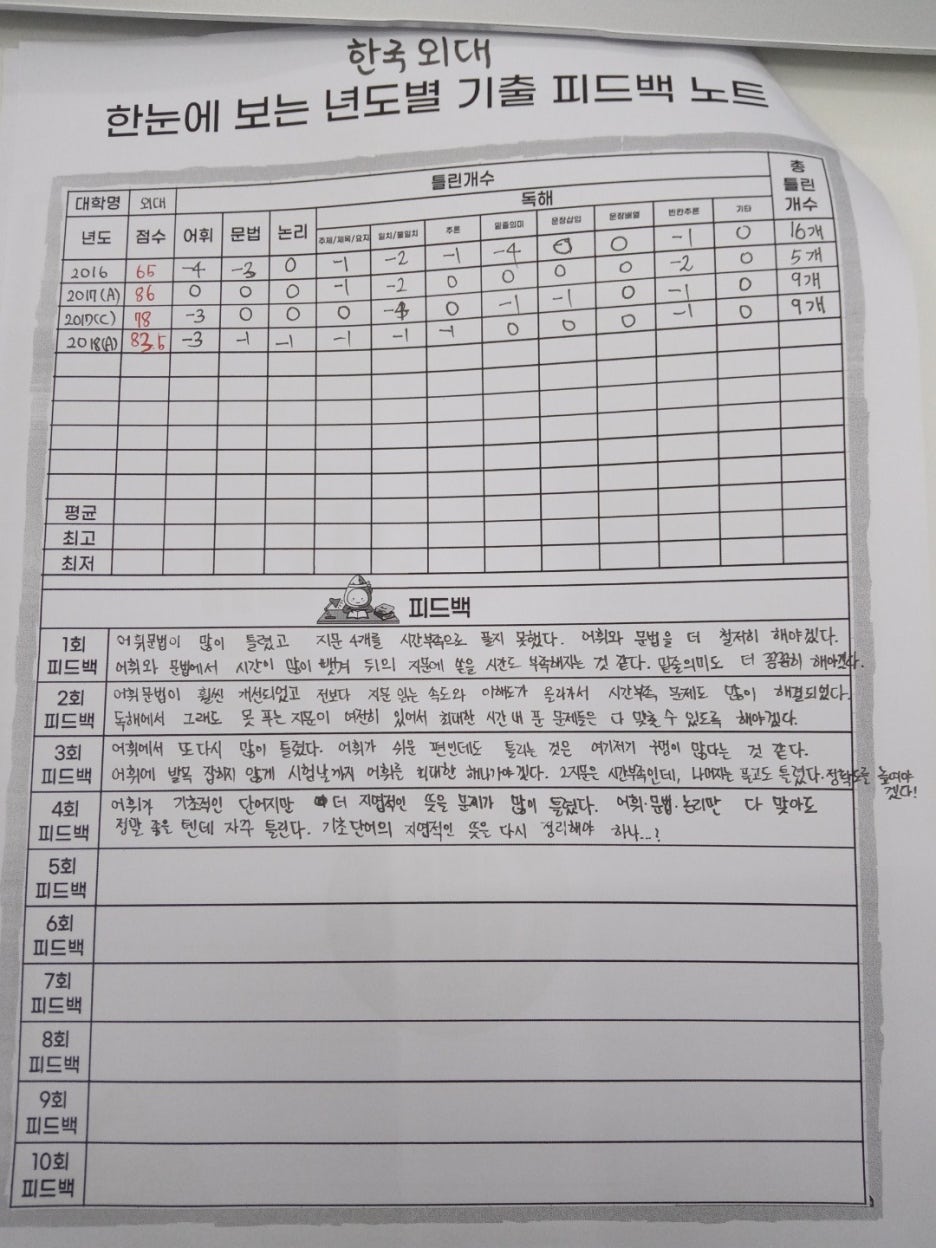 한국 외대
한눈에 보는 년도별 기출 피드백 노트
대학명 외대 틀린개수 총 틀린 개수
독해
년도 점수 어휘 문법 논리 주제/제목/요지 일치/불일치 추론 밑줄의미 문장삽입 문장배열 빈칸추론 기타
2016 65 -4 -3 0 -1 -2 -1 -4 0 0 -1 0 16개
2017(A) 86 0 0 0 -1 -2 0 0 0 0 -2 0 5개
2017(C) 78 -3 0 0 0 -4 0 -1 -1 0 -1 0 9개
2018(A) 83.5 -3 -1 -1 -1 -1 -1 0 0 0 -1 0 9개
평균
최고
최저
피드백
1회 피드백
어휘문법이 많이 틀렸고 지문 4개를 시간부족으로 풀지 못했다. 어휘와 문법을 더 철저히 해야겠다.
어휘와 문법에서 시간이 많이 뺏겨 뒤의 지문에 쏟을 시간도 부족해지는 것 같다. 밑줄의미도 더 꼼꼼히 해야겠다.
2회 피드백
어휘문법이 훨씬 개선되었고 전보다 지문 읽는 속도와 이해도가 올라가서 시간부족 문제도 많이 해결되었다.
독해에서 그래도 못 푸는 지문이 여전히 있어서 최대한 시간 내 푼 문제들은 다 맞출 수 있도록 해야겠다.
3회 피드백
어휘에서 또 다시 많이 틀렸다. 어휘가 쉬운 편인데도 틀리는 것은 여기저기 구멍이 많다는 것 같다.
어휘에 발목 잡히지 않게 시험날까지 어휘를 최대한 해나가야겠다. 2지문은 시간부족인데, 나머지는 풀고도 틀렸다. 정확도를 높여야
겠다!
4회 피드백
어휘가 기초적인 단어지만 더 지엽적인 뜻을 문제가 많이 틀렸다. 어휘·문법·논리만 다 맞아도
정말 좋은 텐데 자꾸 틀린다. 기초단어의 지엽적인 뜻을 다시 정리해야 하나...?
5회 피드백
6회 피드백
7회 피드백
8회 피드백
9회 피드백
10회 피드백